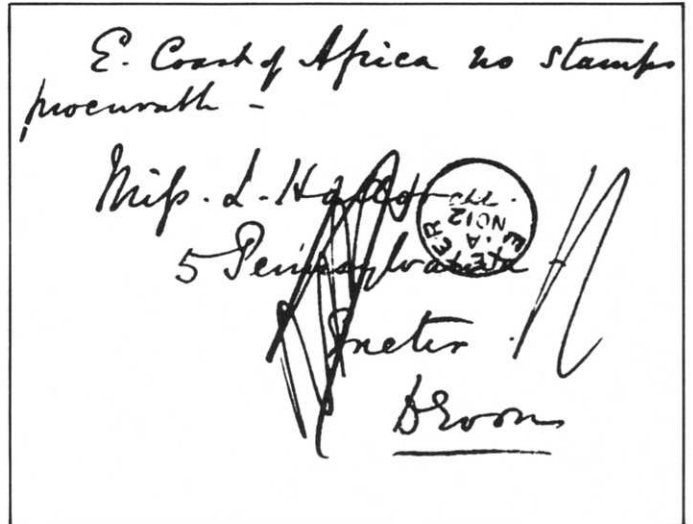 E. Coast of Africa no stamps
procurable -
Miss. L.
5 Pennsylvania
Exeter.
Devon
EXETER
A
NO 12